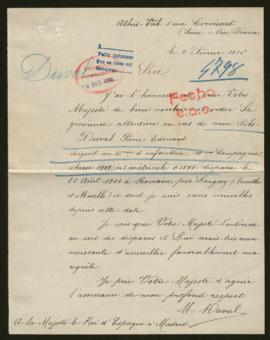 Athis-Val, 5 rue Corvisart
(Seine-et-Oise) France
le 2 Février 1915
Duval
Sire
4798
J'ai l'honneur de Votre
Majesté de bien vouloir accorder Sa
généreuse attention au cas de mon fils:
Duval Pierre Edouard
sergent au d'infanterie, compagnie
classe 1911, n° matricule disparu le
22 Août 1914 à près Longwy (Meurthe
et Moselle) et dont je suis sans nouvelles
depuis cette date.
Je sais que Votre Majesté s'intéresse
au sort des disparus et Lui serais très recon-
naissante d'accueillir favorablement ma
requête
Je prie Votre Majesté d'agréer
l'assurance de mon profond respect
M. Duval
A Sa Majesté le Roi d'Espagne à Madrid